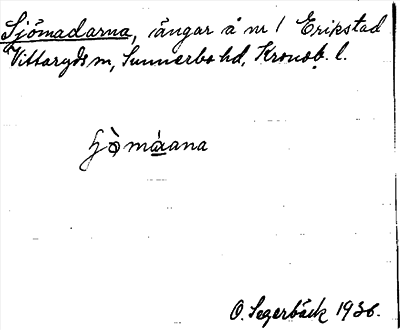 Sjömadarna, ängar å nr 1 Erikstad
Vittaryds sn, Sunnerbo hd, Kronob. l.
O. Segerbäck 1936.